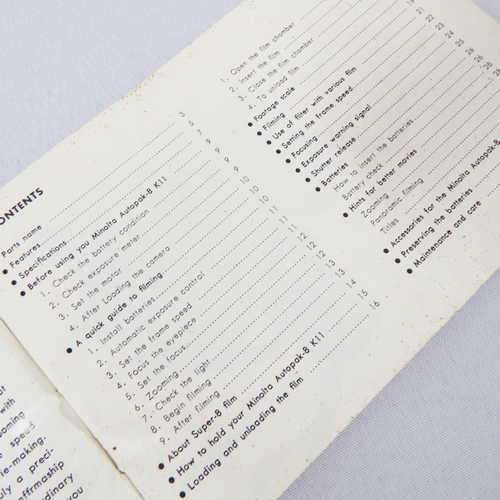 CONTENTS
Parts name
● Features
● Specifications
● Before using you Minolta Autopak-8 K11
1. Check the battery condition
2. Check exposure meter
3. Set the motor
4. After Loading the camera
● A quick guide to filming
1. Install batteries
2. Automatic exposure control
3. Set the frame speed
4. Focus the eyepiece
5. Set the focus
6. Zooming
7. Check the light
8. Begin filming
9. After filming
● About Super-8 film
● How to hold your Minolta Autopak-8 K11
● Loading and unloading the film
1. Open the film chamber
2. Insert the film
3. Close the film chamber
4. To unload film
● Footage scale
● Filming
● Use of filter with various film
● Setting the frame speed
● Focusing
● Exposure warning signal
● Shutter release
● Batteries
How to insert the batteries
Battery check
● Hints for better movies
Zooming
Panoramic filming
Titles
● Accessories for the Minolta Autopak-8
● Preserving the batteries
● Maintenance and care
with
speed
ie-making.
ly a preci-
affirmaship
dinary
you